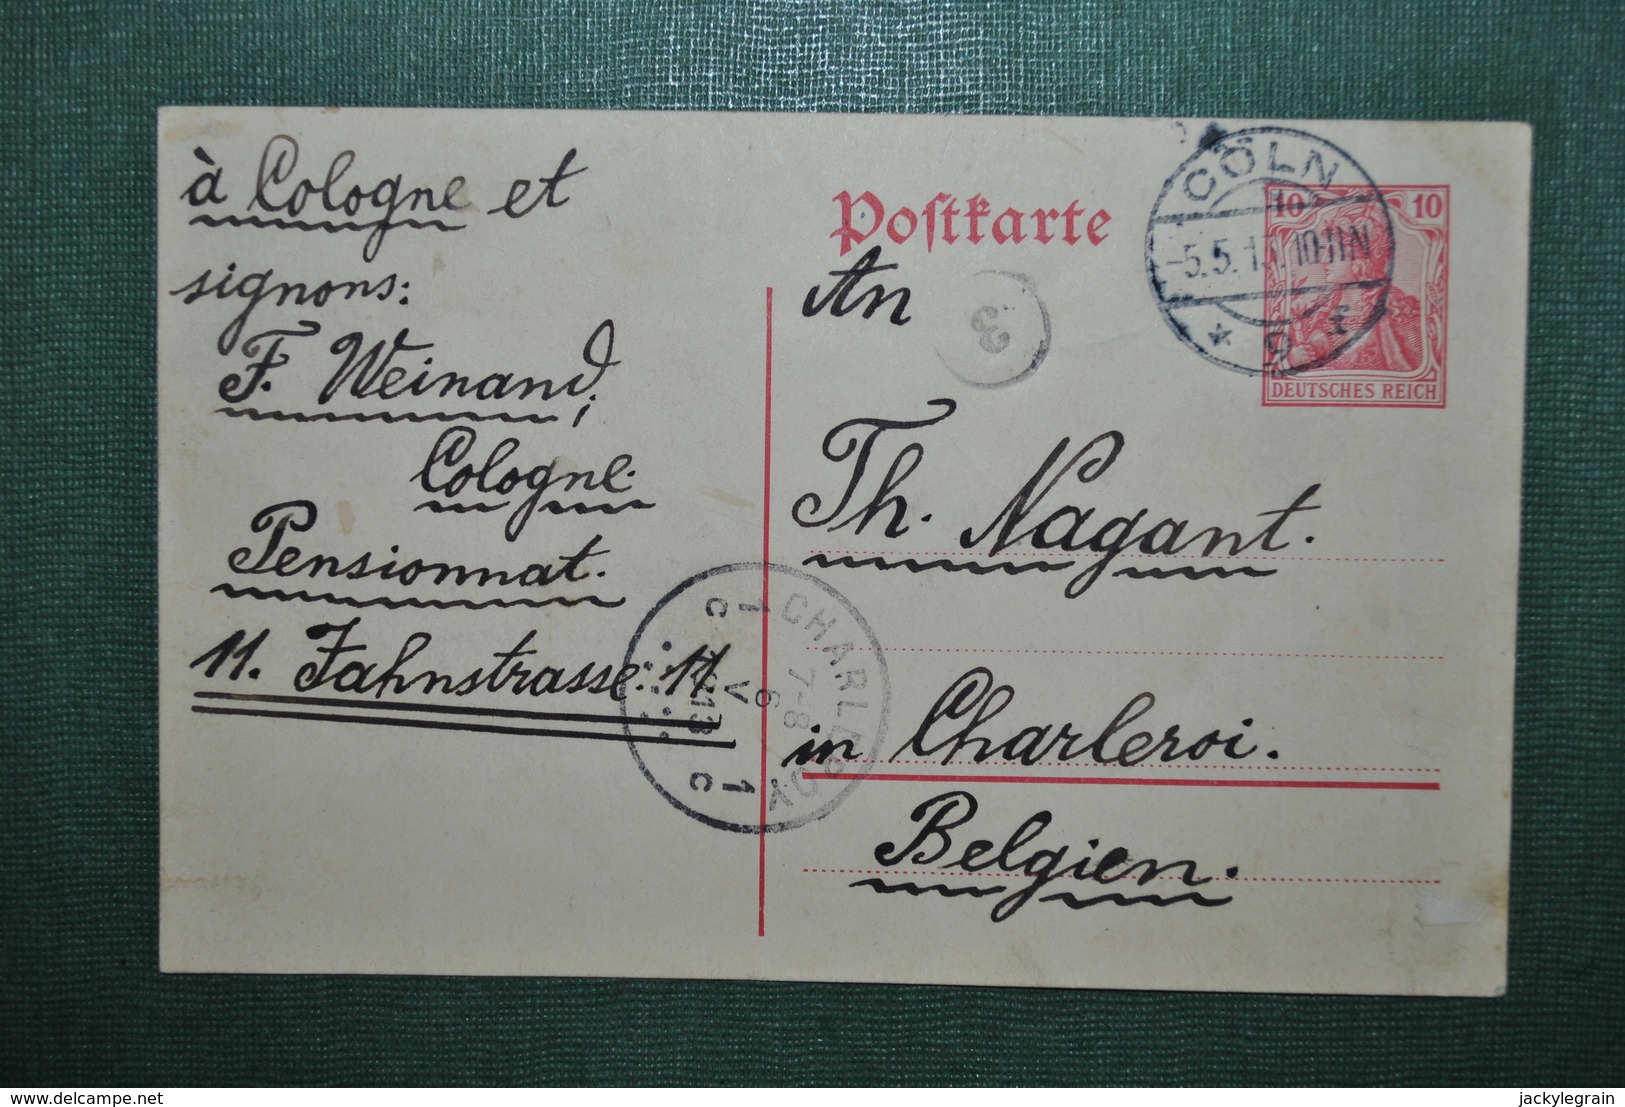 à Cologne et
signons:
F. Weinand,
Cologne.
Pensionnat.
11. Jahnstrasse. 11
Postkarte
An
Th. Nagant.
in Charleroi.
Belgien.
CÖLN
-5.5.13. 10-11N
10 10
DEUTSCHES REICH
3
CHARLEROY
1 1
C C
7-8
6
V
1913
delcampe.net
jackylegrain